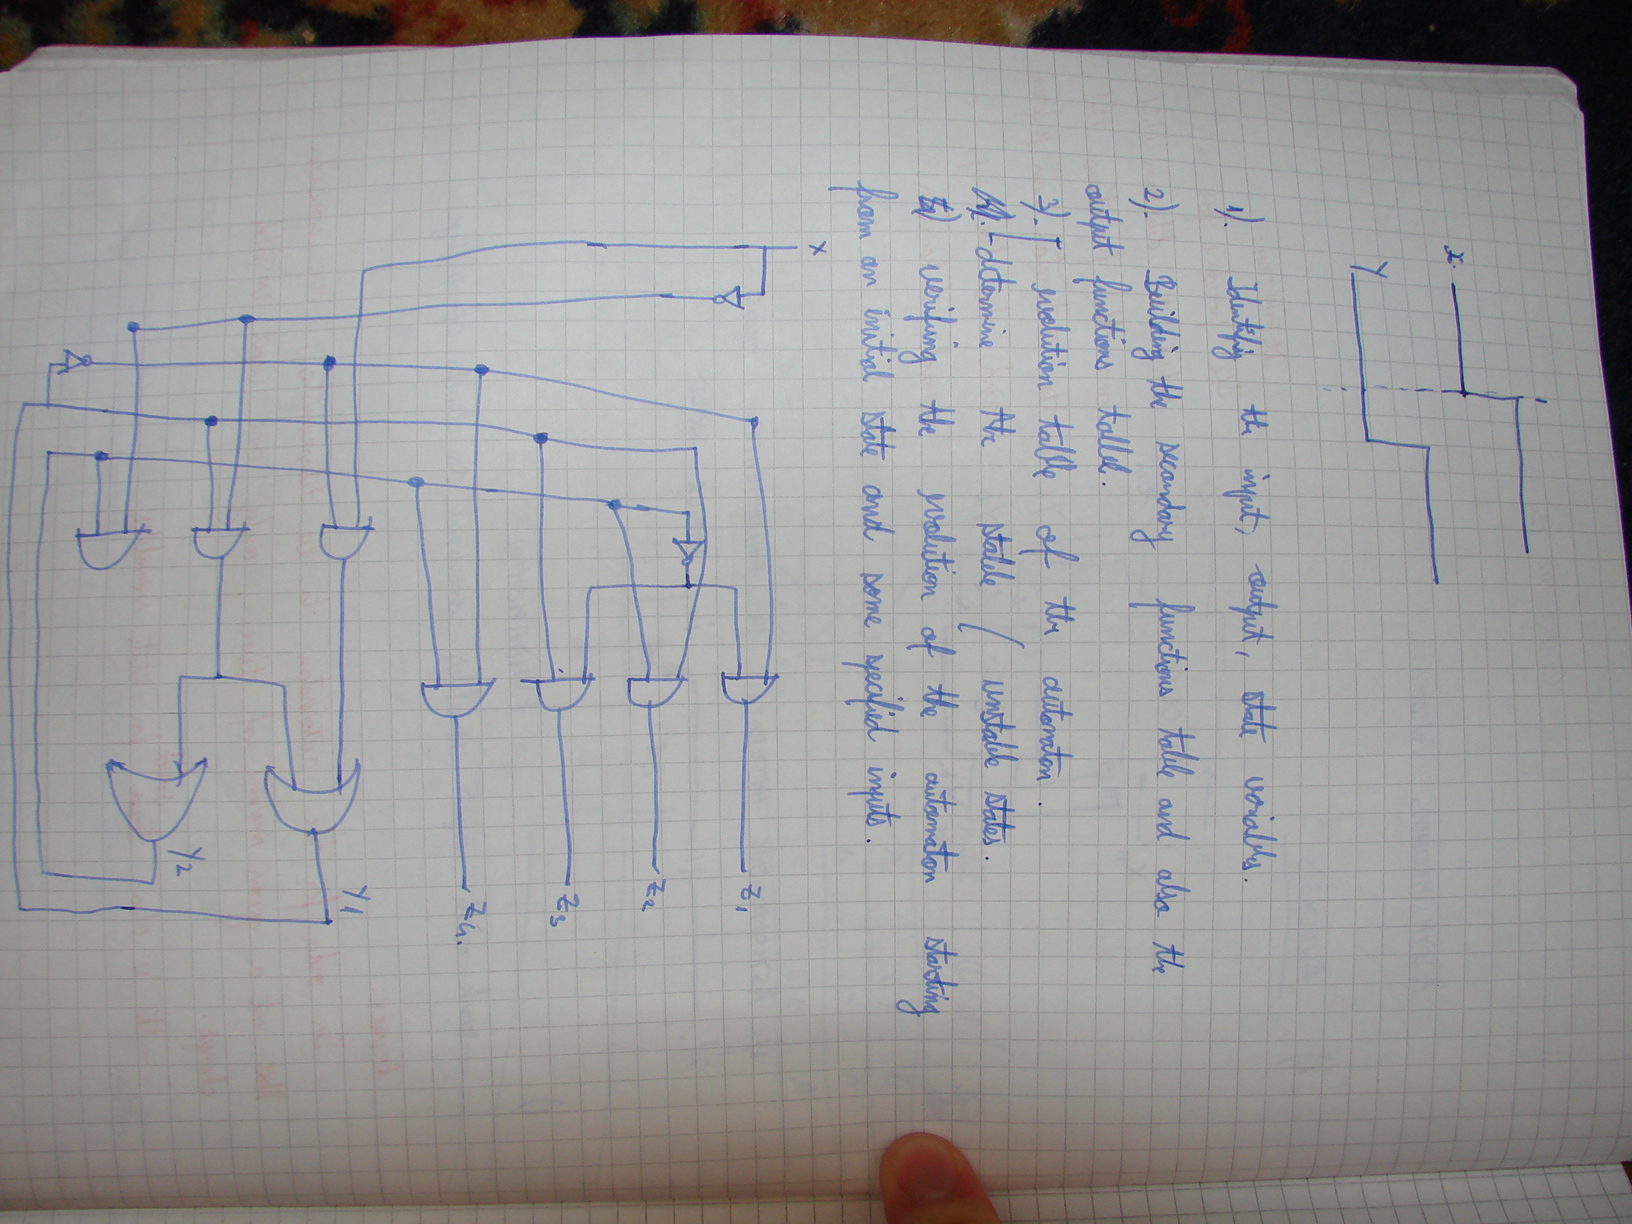 x.
y
1). Identify the input, output, state variables.
2). Building the secondary functions table and also the
output functions table.
3). evolution table of the automaton.
determine the stable / unstable states.
verifing the evolution of the automaton starting
from an initial state and some specified inputs.
x
z1
z2
z3
z4.
y1
y2